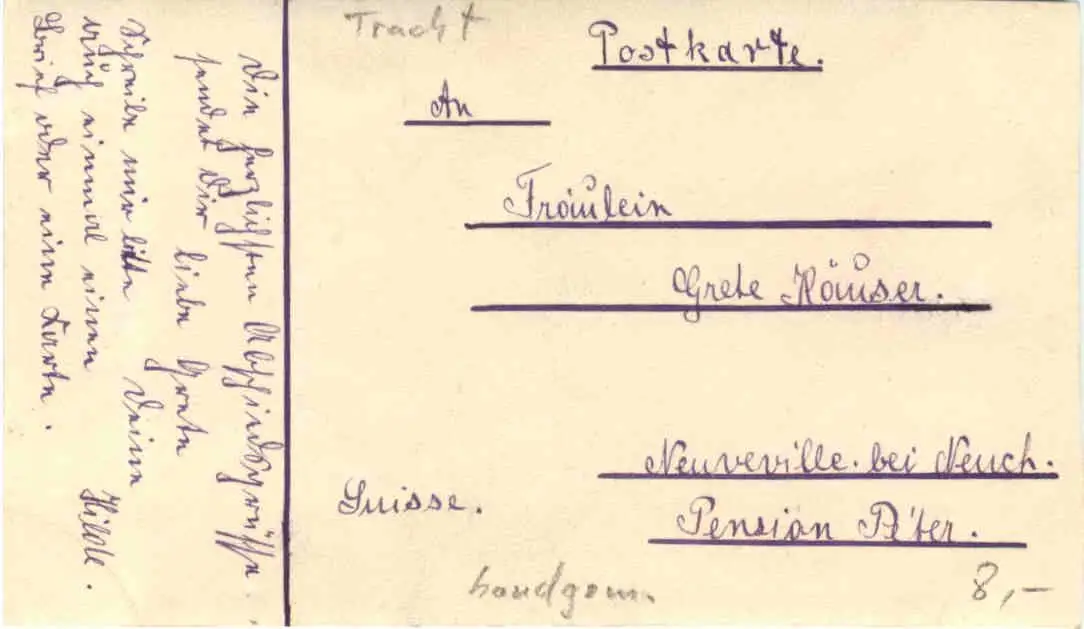 Tracht
Postkarte.
An
Fräulein
Grete Häuser.
Neuveville. bei Neuch.
Suisse.
Pension
handgem.
8,-
Die herzlichsten Abschiedsgrüße.
sendet Dir liebe Grete
Deine
Hilde.
Schreibe mir bitte
auch einmal einen
Brief oder eine Karte.